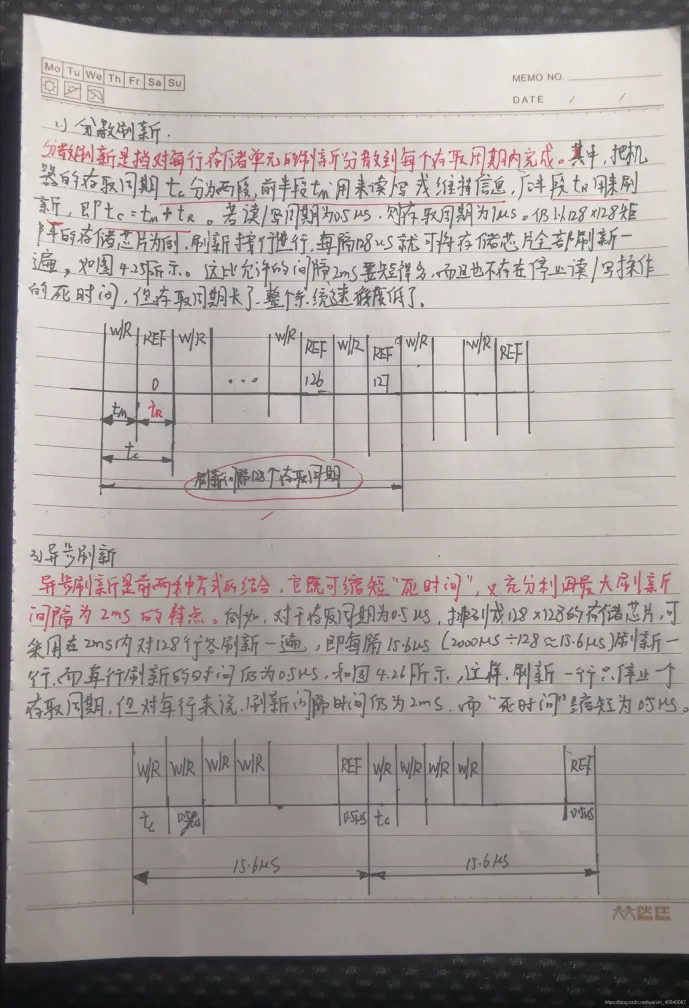 Mo Tu We Th Fr Sa Su
MEMO NO.
DATE / /
2) 分散刷新.
分散刷新是指对每行存储单元的刷新分散到每个存取周期内完成。其中,把机
器的存取周期 tc 分为两段,前半段 tM 用来读/写或维持信息,后半段 tR 用来刷
新,即 tc = tM + tR 。若读/写周期为0.5μs,则存取周期为1μs。仍以128×128矩
阵的存储芯片为例,刷新按行进行,每隔128μs就可将存储芯片全部刷新一
遍,如图4.25所示。这比允许的间隔2ms要短得多,而且也不存在停止读/写操作
的死时间,但存取周期长了,整个系统速度降低了。
W/R REF W/R W/R REF W/R REF W/R W/R REF
0 ··· 126 127
tM tR
tc
刷新间隔128个存取周期
3) 异步刷新
异步刷新是前两种方式的结合,它既可缩短"死时间",又充分利用最大刷新
间隔为2ms的特点。例如,对于存取周期为0.5μs,排列成128×128的存储芯片,可
采用在2ms内对128行各刷新一遍,即每隔15.6μs(2000μs÷128≈15.6μs)刷新一
行,而每行刷新的时间仍为0.5μs,如图4.26所示,这样,刷新一行只停止一个
存取周期,但对每行来说,刷新间隔时间仍为2ms,而"死时间"缩短为0.5μs。
W/R W/R W/R W/R REF W/R W/R W/R W/R REF
tc 0.5μs 0.5μs tc 0.5μs
15.6μs 15.6μs
https://blog.csdn.net/weixin_45840087